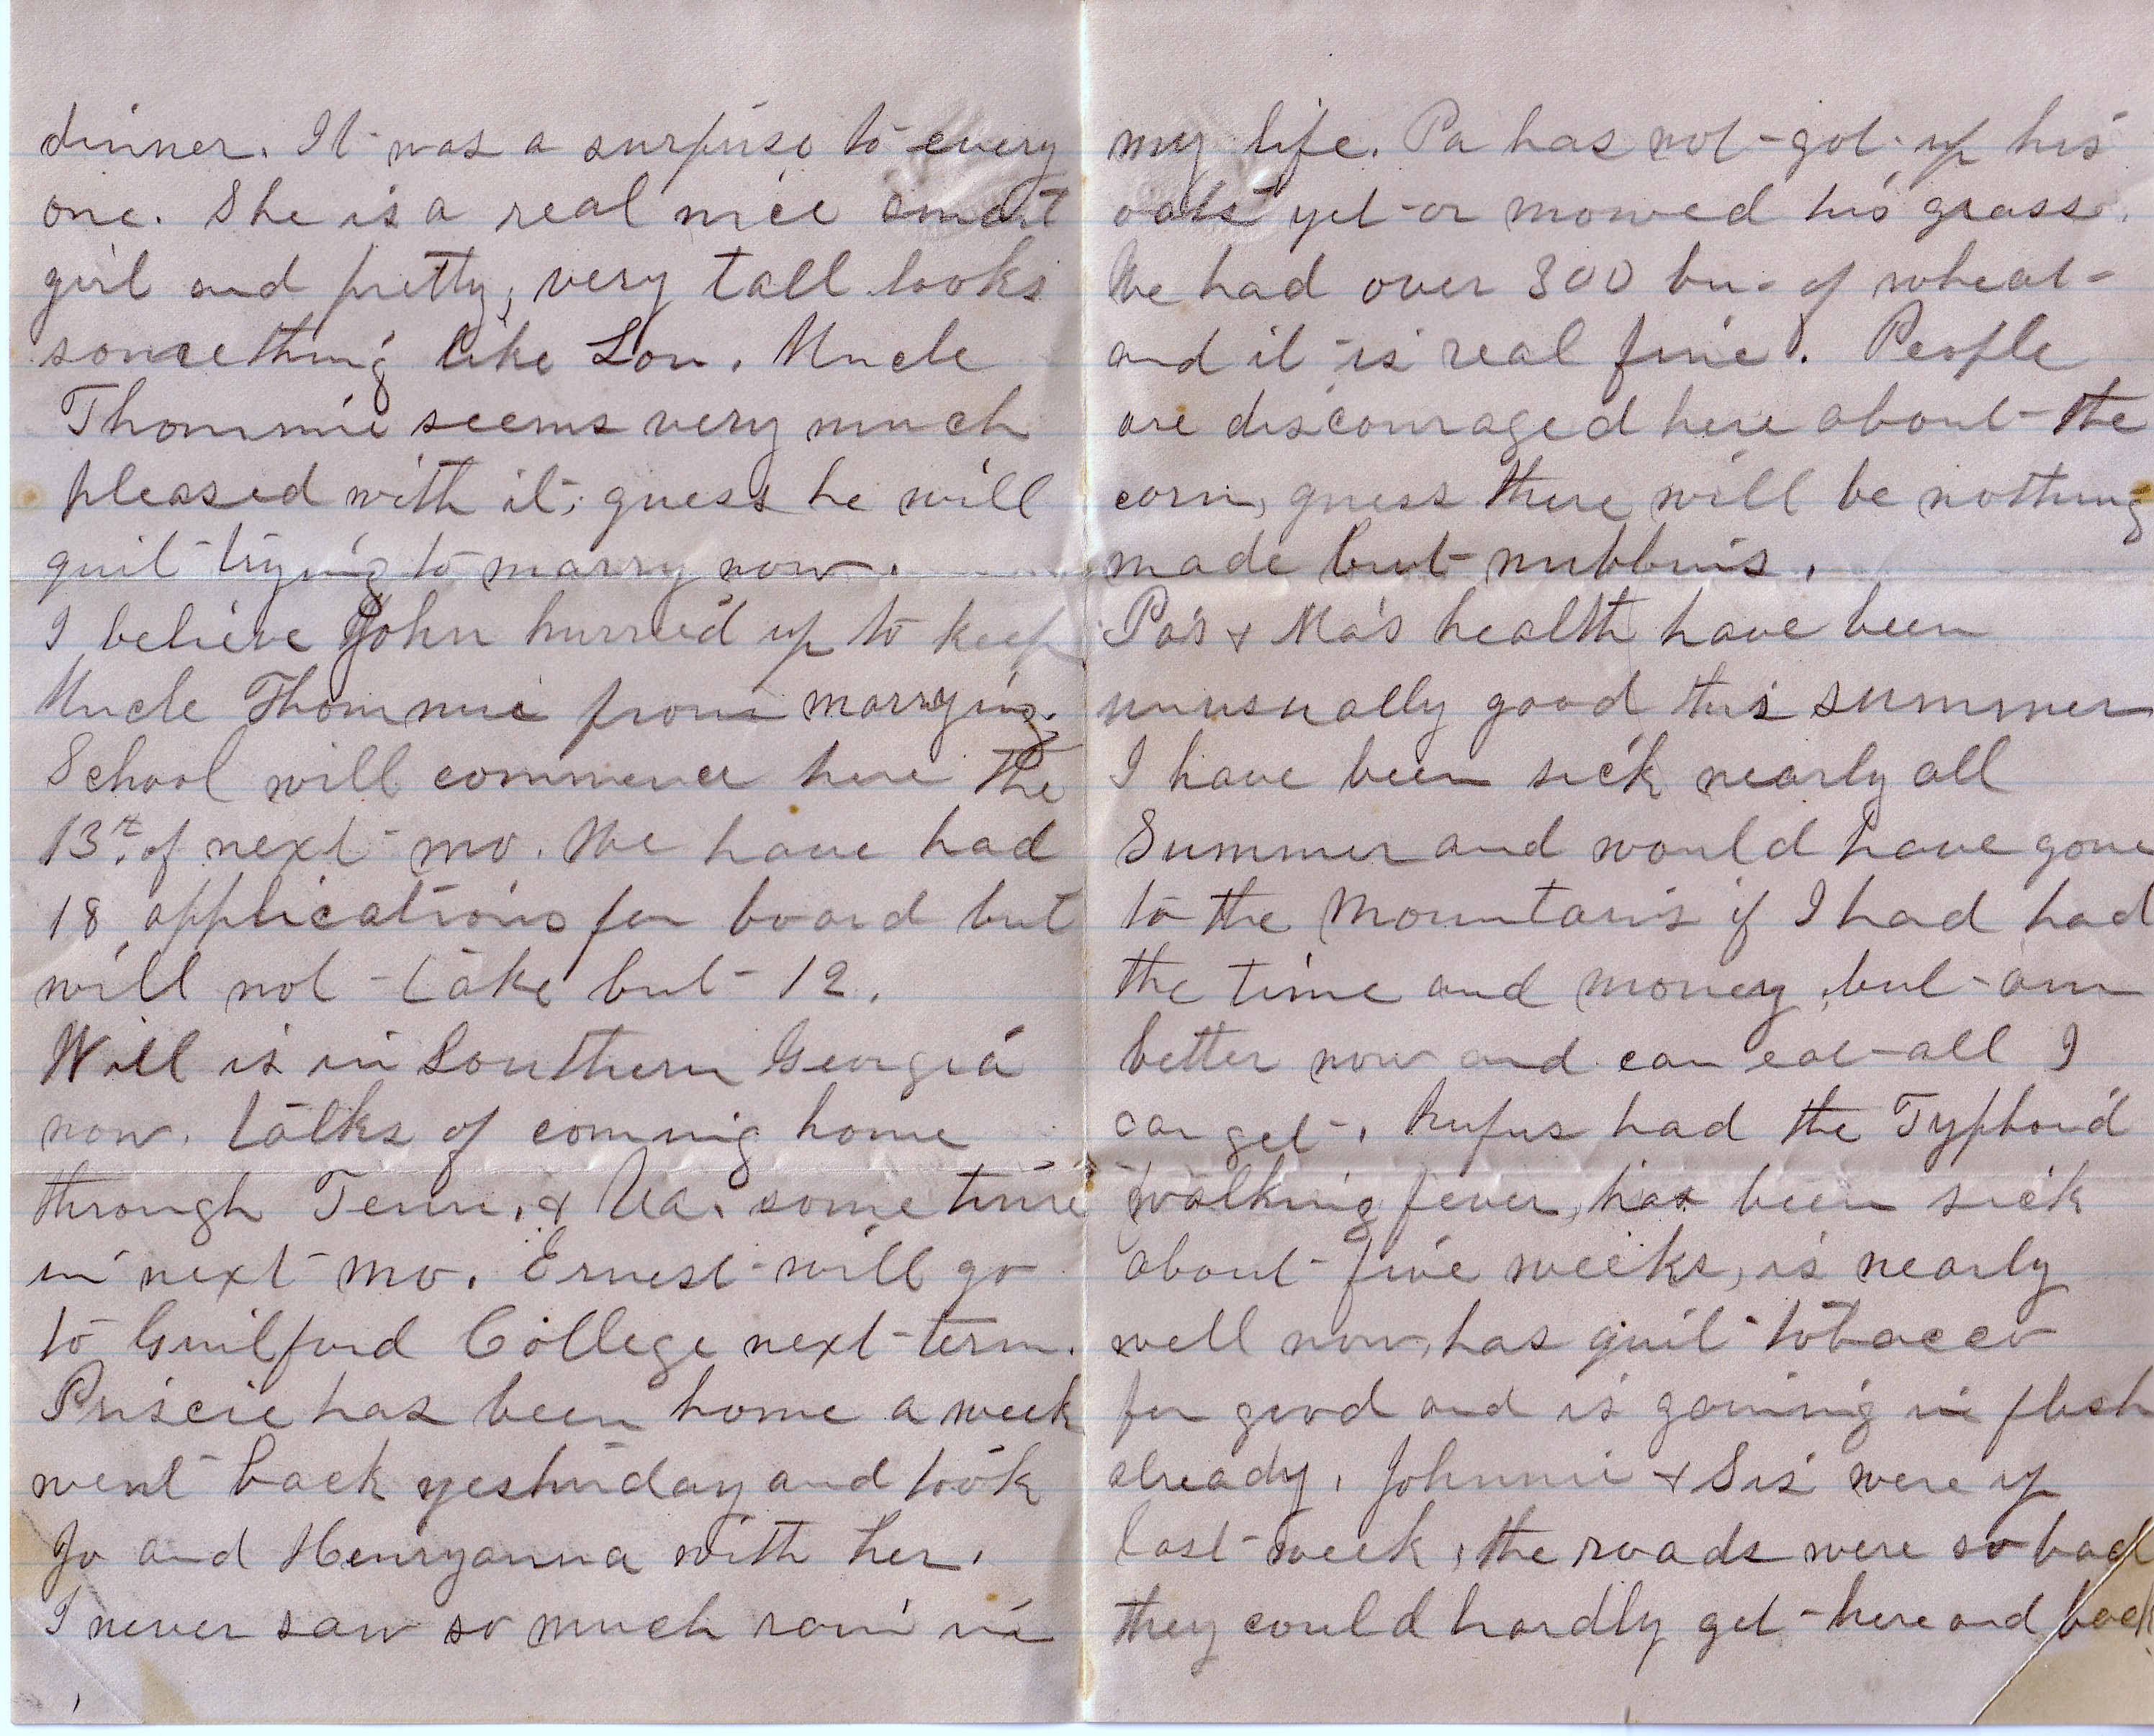 dinner. It was a surprise to every
one. She is a real nice smart
girl and pretty, very tall looks
something like Lou. Uncle
Thommie seems very much
pleased with it; guess he will
quit trying to marry now.
I believe John hurried up to keep
Uncle Thommie from marrying.
School will commence here the
13th. of next mo. We have had
18 applications for board but
will not take but 12.
Will is in Southern Georgia
now. talks of coming home
through Tenn. & Va. some time
in next mo. Ernest will go
to Guilford College next term.
Priscie has been home a week
went back yesturday and took
Jo and Henryanna with her.
I never saw so much rain in
my life. Pa has not got up his
oats yet or mowed his grass.
We had over 300 bu. of wheat
and it is real fine. People
are discouraged here about the
corn, guess there will be nothing
made but nubbins.
Pa's & Ma's health have been
unusually good this summer
I have been sick nearly all
Summer and would have gone
to the Mountains if I had had
the time and money, but am
better now and can eat all I
can get. Rufus had the Typhoid
walking fever, has been sick
about five weeks, is nearly
well now, has quit tobacco
for good and is gaining in flesh
already. Johnnie & Sis were up
last week, the roads were so bad
they could hardly get here and back.